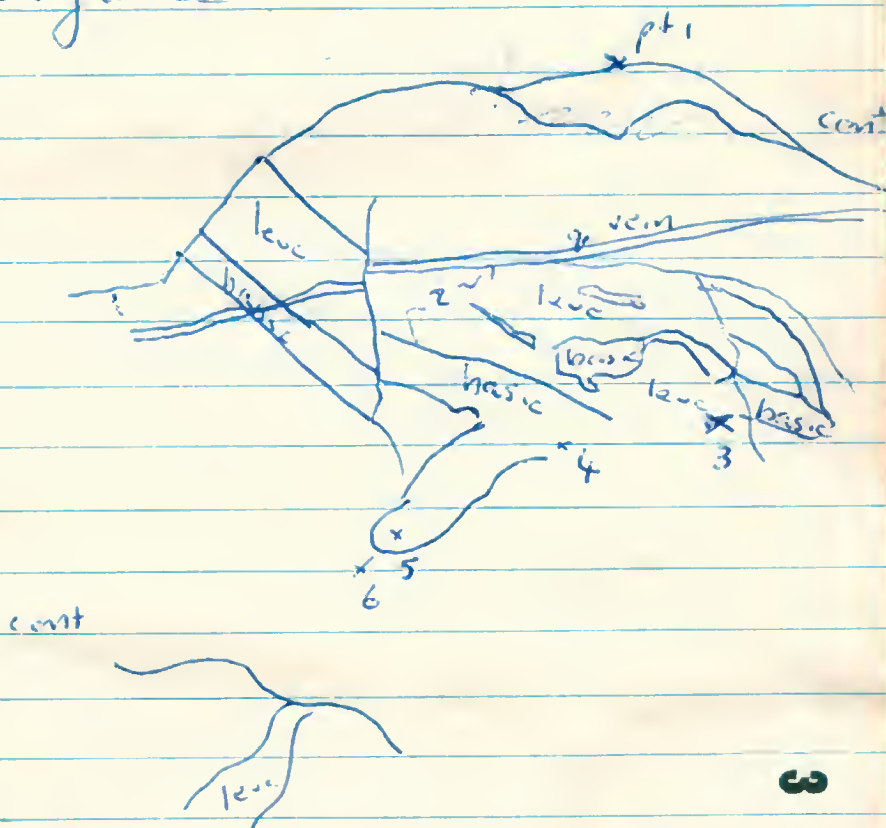 pt 1
cont
leuc
vein
basic
2
leuc
basic
basic
leuc
basic
3
4
5
6
cont
leuc
3